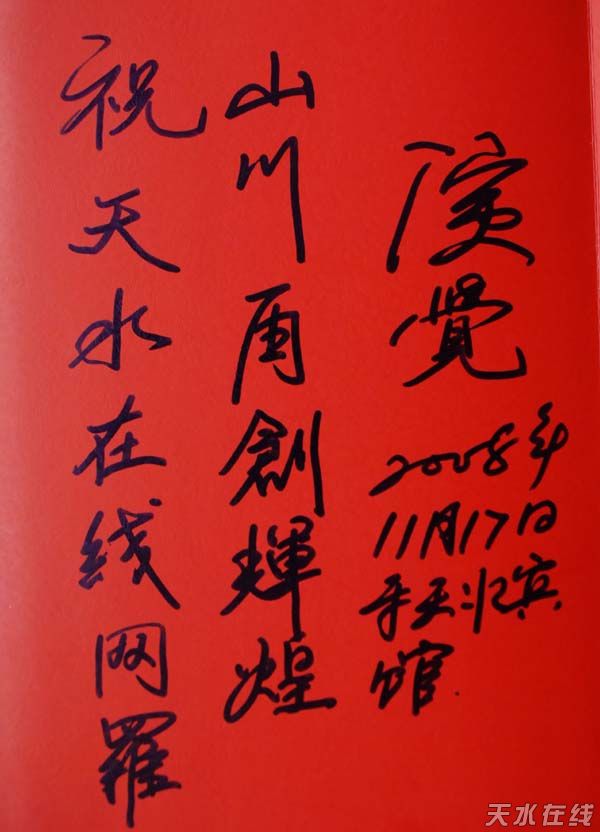 祝天水在线网羅
山川再創輝煌
演覺
2008年
11月17日
于天水宾
馆.
天水在线